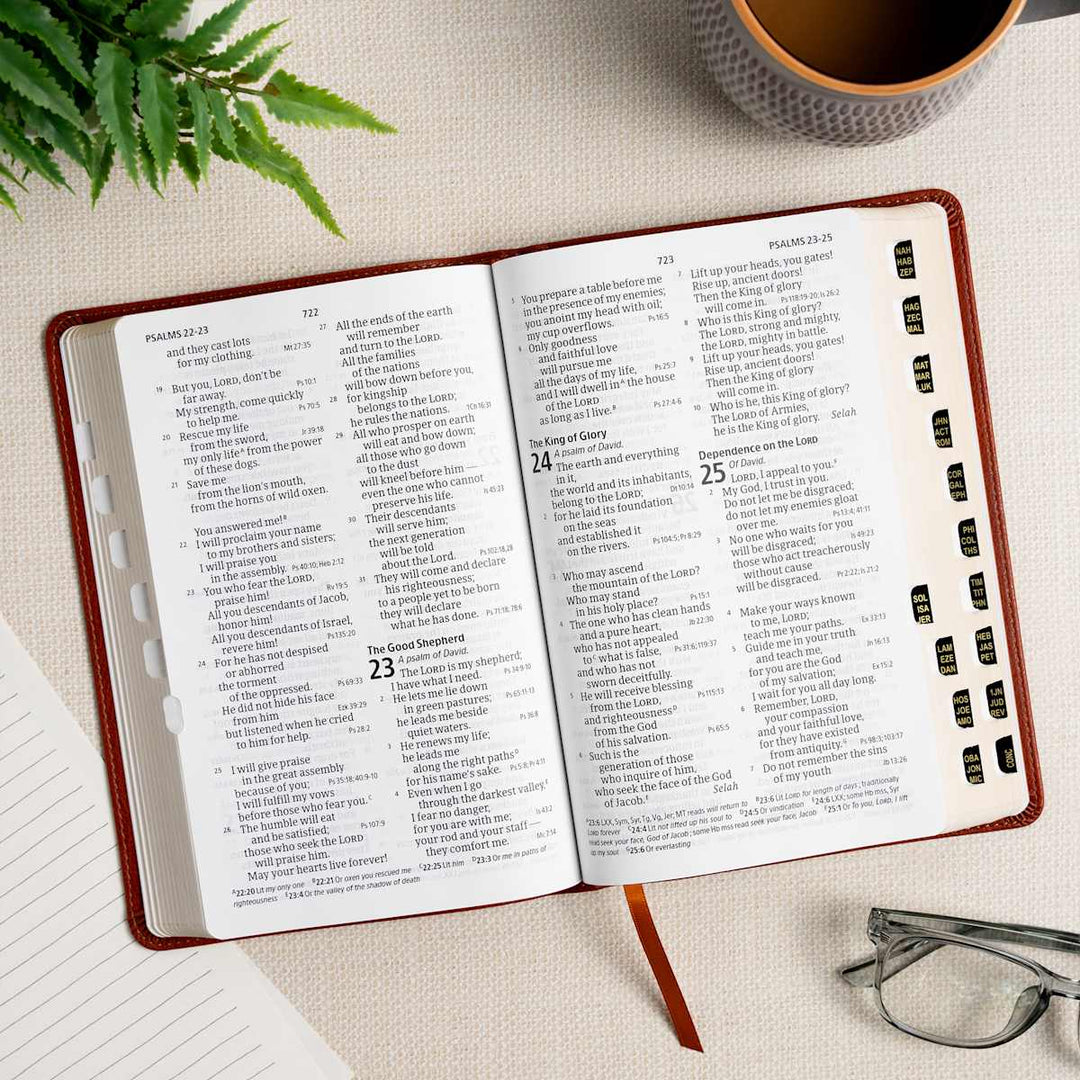 PSALMS 22-23
722
and they cast lots
for my clothing. Mt 27:35
19 But you, LORD, don't be
far away. Ps 10:1
My strength, come quickly
to help me. Ps 70:5
20 Rescue my life
from the sword, Jr 39:18
my only life^A from the power
of these dogs.
21 Save me
from the lion's mouth,
from the horns of wild oxen.
You answered me!^B
22 I will proclaim your name
to my brothers and sisters;
I will praise you
in the assembly. Ps 40:10; Heb 2:12
23 You who fear the LORD,
praise him! Rv 19:5
All you descendants of Jacob,
honor him!
All you descendants of Israel,
revere him! Ps 135:20
24 For he has not despised
or abhorred
the torment
of the oppressed. Ps 69:33
He did not hide his face
from him Ezk 39:29
but listened when he cried
to him for help. Ps 28:2
25 I will give praise
in the great assembly
because of you; Ps 35:18; 40:9-10
I will fulfill my vows
before those who fear you.^C
26 The humble will eat
and be satisfied; Ps 107:9
those who seek the LORD
will praise him.
May your hearts live forever!
27 All the ends of the earth
will remember
and turn to the LORD.
All the families
of the nations
will bow down before you,
28 for kingship
belongs to the LORD;
he rules the nations. 1Co 16:31
29 All who prosper on earth
will eat and bow down;
all those who go down
to the dust
will kneel before him —
even the one who cannot
preserve his life. Is 45:23
30 Their descendants
will serve him;
the next generation
will be told
about the Lord. Ps 102:18,28
31 They will come and declare
his righteousness;
to a people yet to be born
they will declare
what he has done. Ps 71:18; 78:6
The Good Shepherd
23 A psalm of David.
The LORD is my shepherd;
I have what I need. Ps 34:9-10
2 He lets me lie down
in green pastures; Ps 65:11-13
he leads me beside
quiet waters. Ps 36:8
3 He renews my life;
he leads me
along the right paths^D
for his name's sake. Ps 5:8; Pr 4:11
4 Even when I go
through the darkest valley,^E
I fear no danger,
for you are with me; Is 43:2
your rod and your staff —
they comfort me. Mc 7:14
^A22:20 Lit my only one ^B22:21 Or oxen you rescued me ^C22:25 Lit him ^D23:3 Or me in paths of
righteousness ^E23:4 Or the valley of the shadow of death
723
PSALMS 23-25
5 You prepare a table before me
in the presence of my enemies;
you anoint my head with oil;
my cup overflows. Ps 16:5
6 Only goodness
and faithful love
will pursue me
all the days of my life, Ps 25:7
and I will dwell in^A the house
of the LORD
as long as I live.^B Ps 27:4-6
The King of Glory
24 A psalm of David.
The earth and everything
in it,
the world and its inhabitants,
belong to the LORD; Dt 10:14
2 for he laid its foundation
on the seas
and established it
on the rivers. Ps 104:5; Pr 8:29
3 Who may ascend
the mountain of the LORD?
Who may stand
in his holy place? Ps 15:1
4 The one who has clean hands
and a pure heart, Jb 22:30
who has not appealed
to^C what is false, Ps 31:6; 119:37
and who has not
sworn deceitfully.
5 He will receive blessing
from the LORD, Ps 115:13
and righteousness^D
from the God
of his salvation. Ps 65:5
6 Such is the
generation of those
who inquire of him,
who seek the face of the God
of Jacob.^E Selah
7 Lift up your heads, you gates!
Rise up, ancient doors!
Then the King of glory
will come in. Ps 118:19-20; Is 26:2
8 Who is this King of glory?
The LORD, strong and mighty,
the LORD, mighty in battle.
9 Lift up your heads, you gates!
Rise up, ancient doors!
Then the King of glory
will come in.
10 Who is he, this King of glory?
The LORD of Armies,
he is the King of glory. Selah
Dependence on the LORD
25 Of David.
LORD, I appeal to you.^F
2 My God, I trust in you.
Do not let me be disgraced;
do not let my enemies gloat
over me. Ps 13:4; 41:11
3 No one who waits for you
will be disgraced; Is 49:23
those who act treacherously
without cause
will be disgraced. Pr 2:22; Is 21:2
4 Make your ways known
to me, LORD; Ex 33:13
teach me your paths.
5 Guide me in your truth Jn 16:13
and teach me,
for you are the God
of my salvation; Ex 15:2
I wait for you all day long.
6 Remember, LORD,
your compassion
and your faithful love,
for they have existed
from antiquity.^G Ps 98:3; 103:17
7 Do not remember the sins
of my youth Jb 13:26
^A23:6 LXX, Sym, Syr, Tg, Vg, Jer; MT reads will return to ^B23:6 Lit LORD for length of days; traditionally
LORD forever ^C24:4 Lit not lifted up his soul to ^D24:5 Or vindication ^E24:6 LXX; some Hb mss, Syr
read seek your face, God of Jacob; some Hb mss read seek your face, Jacob ^F25:1 Or To you, LORD, I lift
up my soul ^G25:6 Or everlasting
NAH
HAB
ZEP
HAG
ZEC
MAL
MAT
MAR
LUK
JHN
ACT
ROM
COR
GAL
EPH
PHI
COL
THS
TIM
TIT
PHN
SOL
ISA
JER
HEB
JAS
PET
LAM
EZE
DAN
1JN
JUD
REV
HOS
JOE
AMO
CONC
OBA
JON
MIC